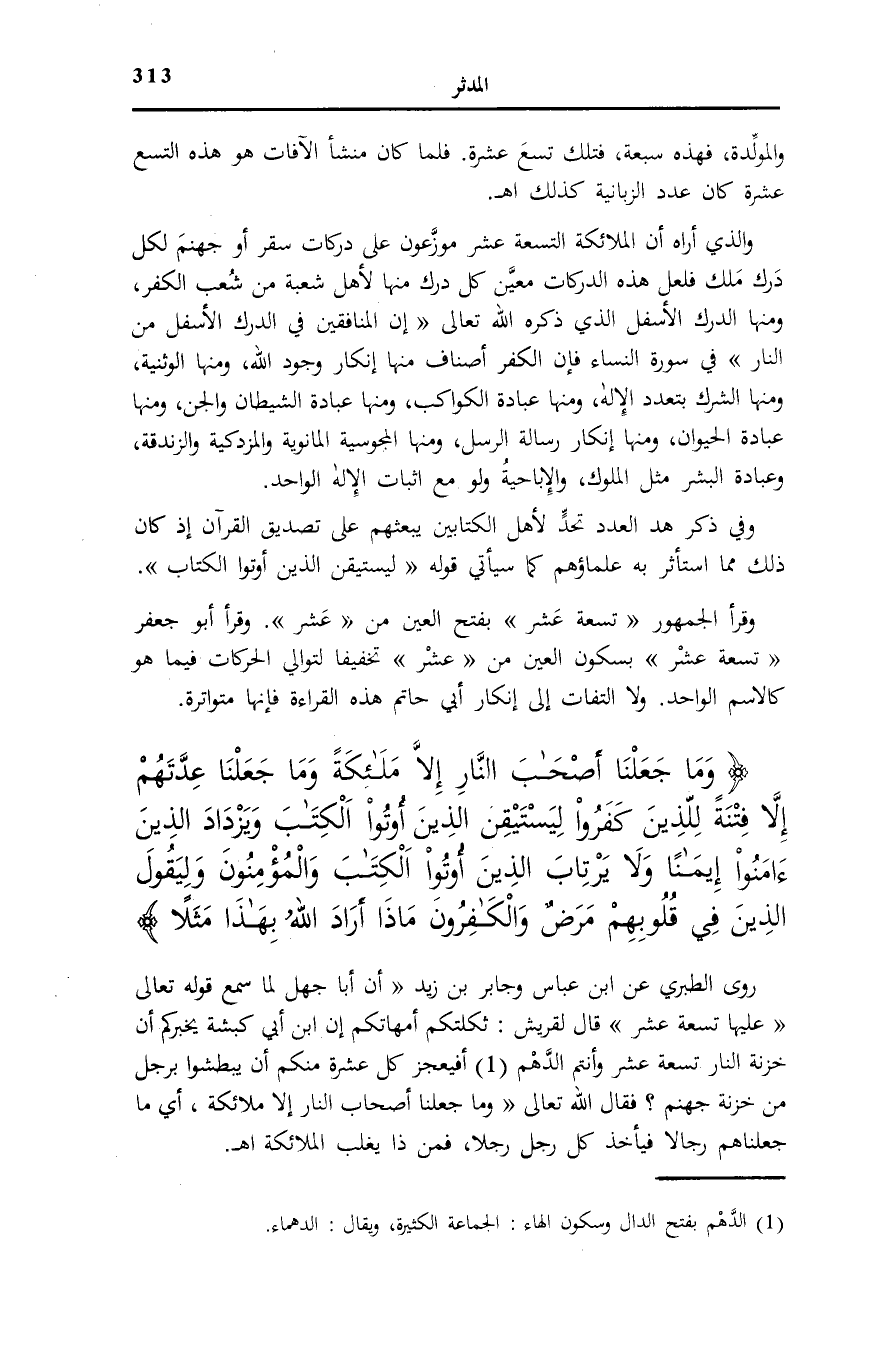 313
المدثر
والمولِّدة، فهذه سبعة، فتلك تسعَ عشرة. فلما كان منشأ الآفات هو هذه التسع
عشرة كان عدد الزبانية كذلك اهـ.
والذي أراه أن الملائكة التسعة عشر موزَّعون على دركات سقر أو جهنمَ لكل
دَرك مَلك فلعل هذه الدركات معيَّن كل درك منها لأهل شعبة من شُعب الكفر،
ومنها الدرك الأسفل الذي ذكره الله تعالى « إن المنافقين في الدرك الأسفل من
النار » في سورة النساء فإن الكفر أصناف منها إنكار وجود الله، ومنها الوثنية،
ومنها الشرك بتعدد الإِلهٰ، ومنها عبادة الكواكب، ومنها عبادة الشيطان والجن، ومنها
عبادة الحيوان، ومنها إنكار رسالة الرسل، ومنها المجوسية المانوية والمزدكية والزندقة،
وعبادة البشر مثل الملوك، والإِباحيةُ ولو مع اثبات الإِلهٰ الواحد.
وفي ذكر هد العدد تحدٍّ لأهل الكتابين يبعثهم على تصديق القرآن إذ كان
ذلك مما استأثر به علماؤهم كما سيأتي قوله « ليستيقن الذين أوتوا الكتاب ».
وقرأ الجمهور « تسعة عَشر » بفتح العين من « عَشر ». وقرأ أبو جعفر
« تسعة عشْر » بسكون العين من « عشْر » تخفيفا لتوالي الحركات فيما هو
كالاسم الواحد. ولا التفات إلى إنكار أبي حاتم هذه القراءة فإنها متواترة.
﴿ وَمَا جَعَلْنَا أَصْحَـٰبَ النَّارِ إِلاَّ مَلَـٰئِكَةً وَمَا جَعَلْنَا عِدَّتَهُمْ
إِلَّا فِتْنَةً لِلَّذِينَ كَفَرُواْ لِيَسْتَيْقِنَ الذِينَ أُوتُواْ اَلْكِتَـٰبَ وَيَزْدَادَ الذِينَ
ءَامَنُواْ إِيمَـٰنًا وَلَا يَرْتَابَ الذِينَ أُوتُواْ اَلْكِتَـٰبَ وَالْمُؤْمِنُونَ وَلِيَقُولَ
الذِينَ فِي قُلُوبِهِمْ مَرَضٌ وَالْكَـٰفِرُونَ مَاذَا أَرَادَ اللهُ بِهَـٰذَا مَثَلًا ﴾
روى الطبري عن ابن عباس وجابر بن زيد « أن أبا جهل لما سمع قوله تعالى
« عليها تسعة عشر » قال لقريش : ثكلتكم أمهاتكم إن ابن أبي كبشة يخبركم أن
خزنة النار تسعة عشر وأنتم الدَّهْم (1) أفيعجز كل عشرة منكم أن يبطشوا برجل
من خزنة جهنم ؟ فقال الله تعالى « وما جعلنا أصحاب النار إلا ملائكة ، أي ما
جعلناهم رجالا فيأخذ كل رجل رجلا، فمن ذا يغلب الملائكة اهـ.
(1) الدَّهْم بفتح الدال وسكون الهاء : الجماعة الكثيرة، ويقال : الدهماء.